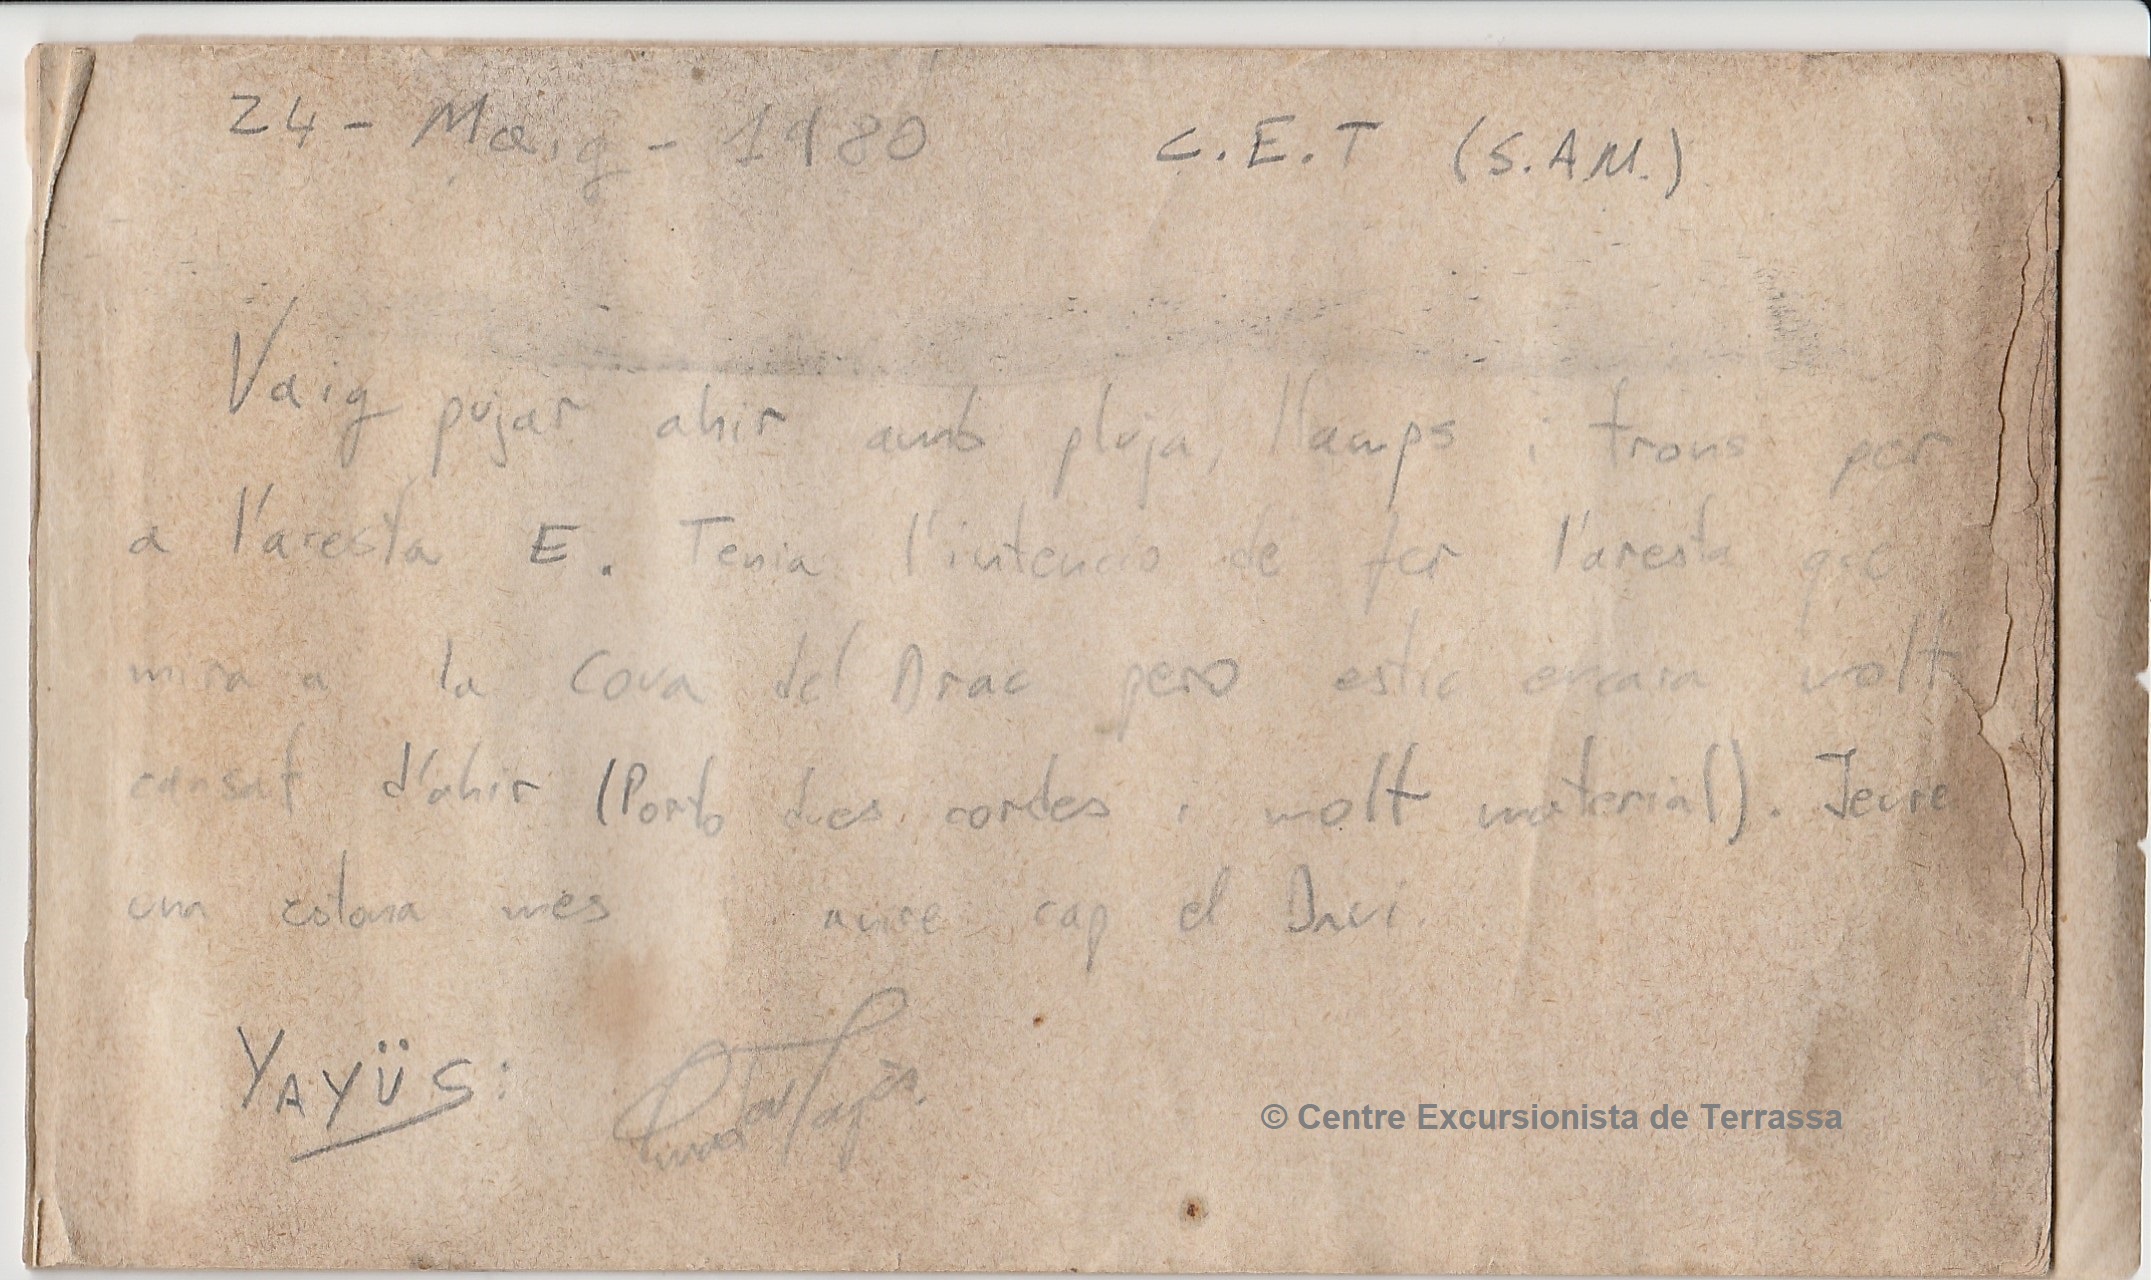 24 - Maig - 1980 C.E.T (S.A.M.)
Vaig pujar ahir amb pluja, llamps i trons per
a l'aresta E. Tenia l'intencio de fer l'aresta que
mira a la Cova del Drac pero estic encara molt
cansat d'ahir (Porto dues cordes i molt material). Jeure
una estona mes anire cap el
YAYÜS:
© Centre Excursionista de Terrassa